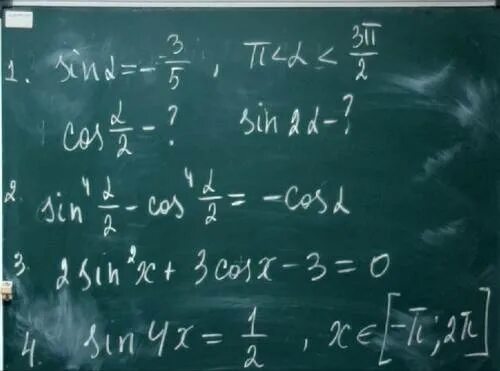 1. sin α = - 3/5 , π < α < 3π/2
cos α/2 - ? sin 2α - ?
2. sin⁴ α/2 - cos⁴ α/2 = - cos α
3. 2 sin² x + 3 cos x - 3 = 0
4. sin 4x = 1/2 , x ∈ [-π; 2π]